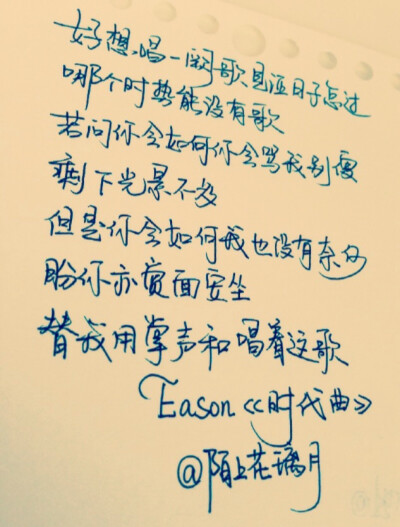 好想唱一阕歌见证日子怎过
哪个时势能没有歌
若问你会如何你会骂我别傻
剩下光景不多
但是你会如何我也没有奈何
盼你亦赏面安坐
替我用掌声和唱着这歌
Eason《时代曲》
@陌上花璃月